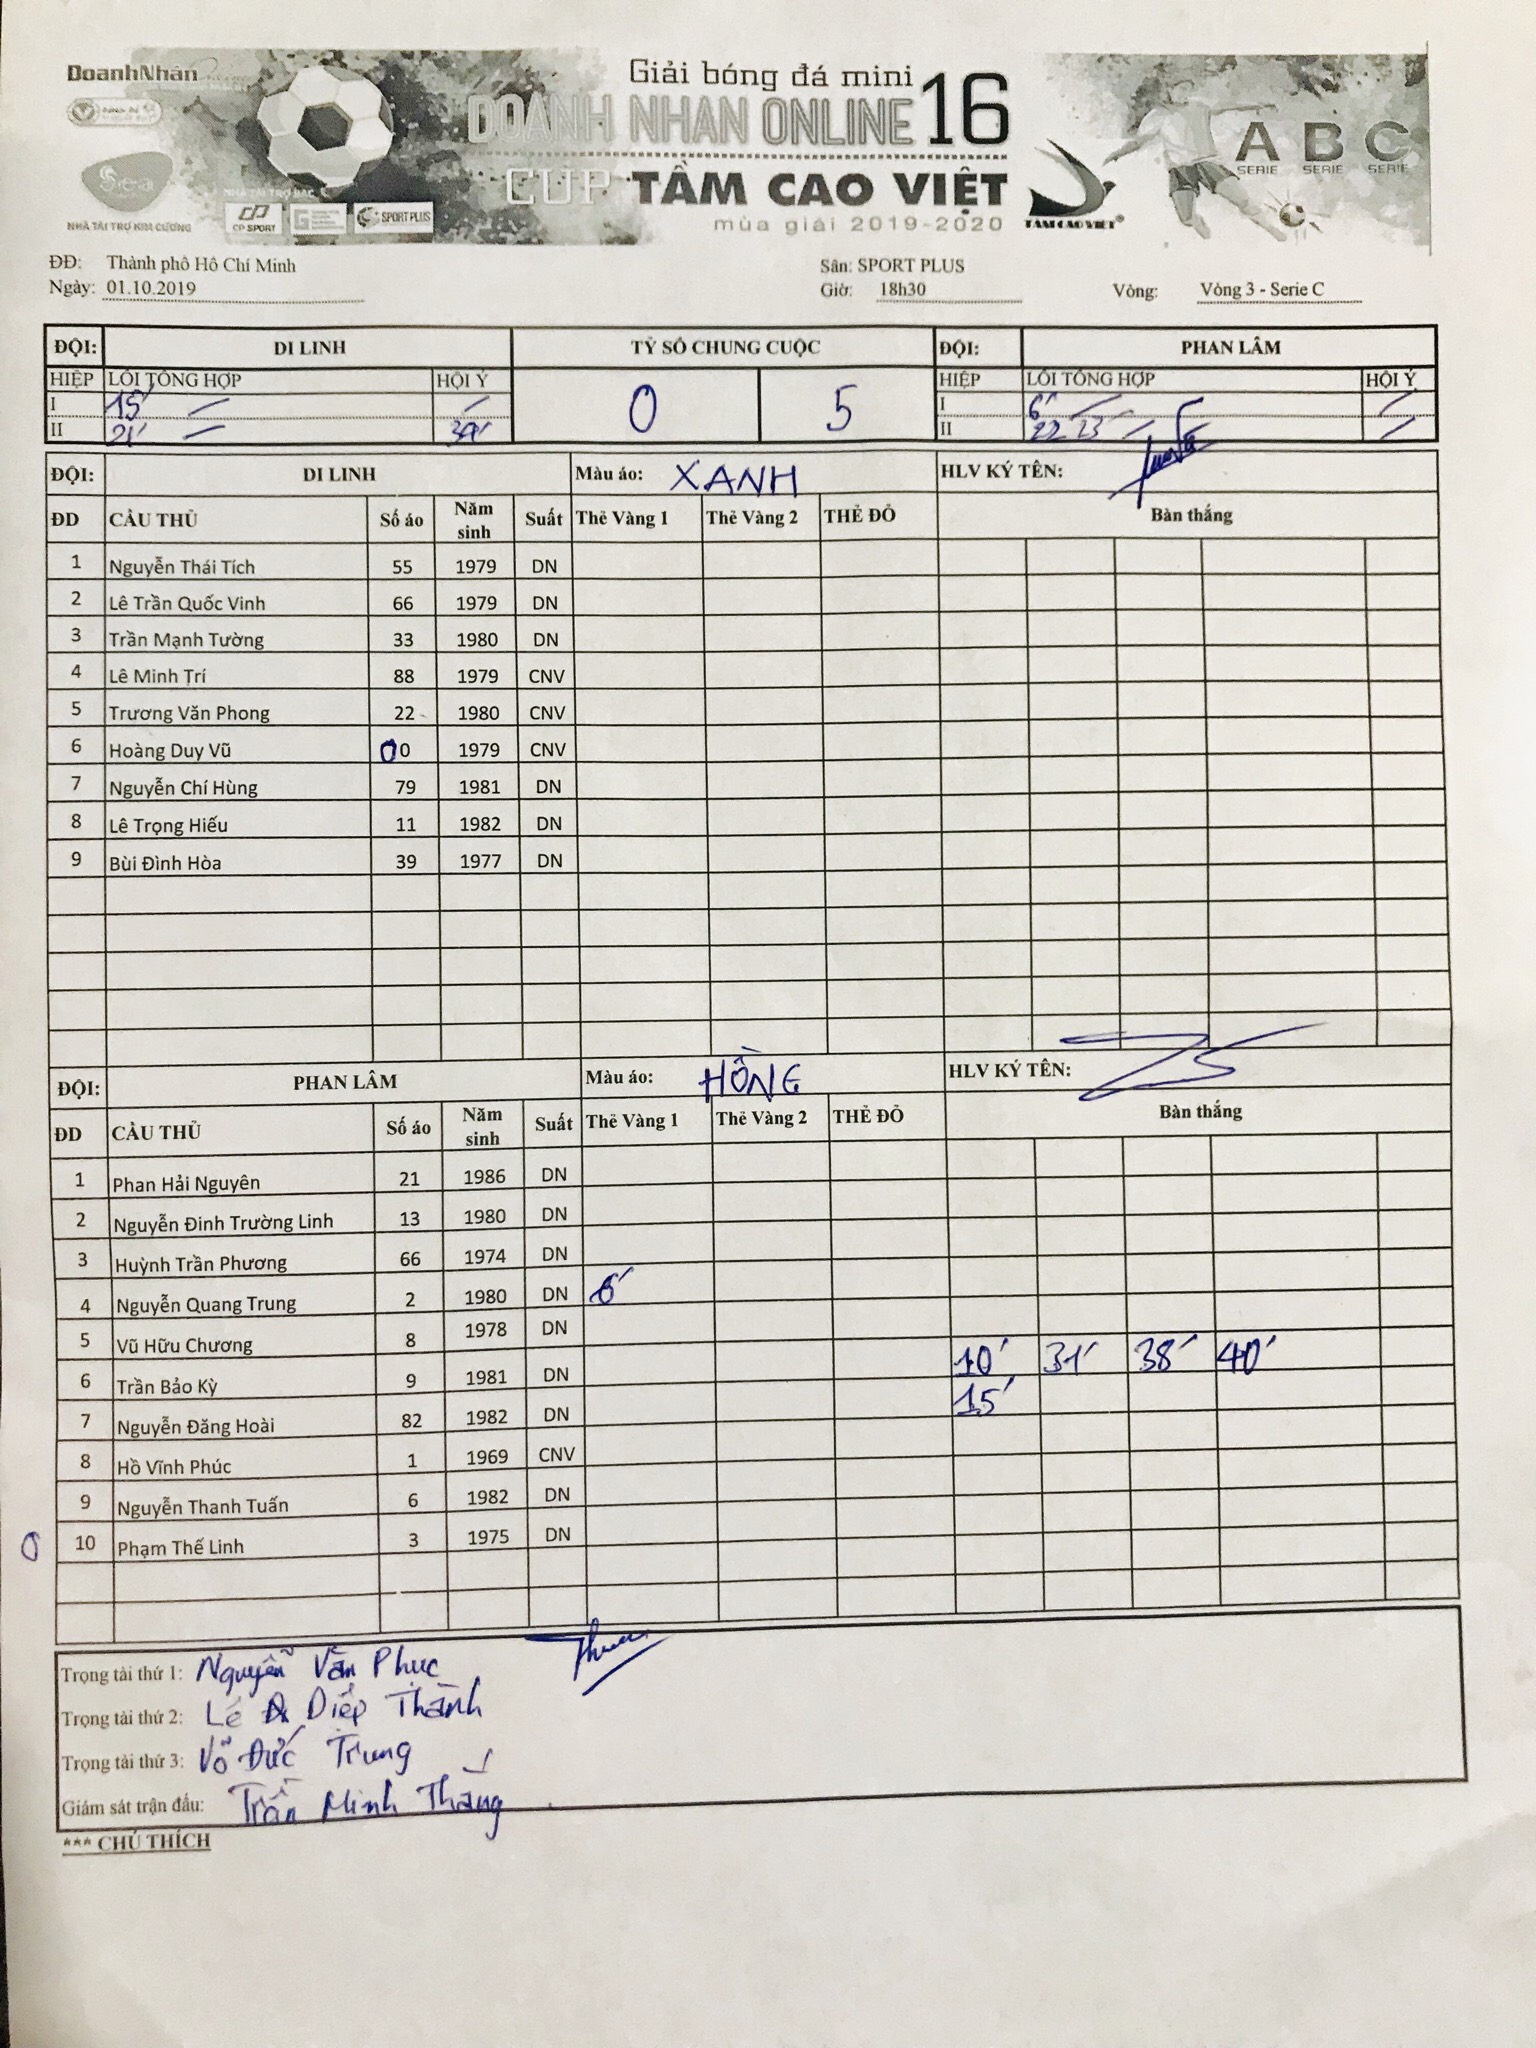 DoanhNhân
Giải bóng đá mini
DOANH NHAN ONLINE 16
CUP TẦM CAO VIỆT
mùa giải 2019-2020
A B C
SERIE SERIE SERIE
NHÀ TÀI TRỢ KIM CƯƠNG
NHÀ TÀI TRỢ BẠC
CP SPORT
SPORT PLUS
TẦM CAO VIỆT®
ĐĐ: Thành phô Hô Chí Minh Sân: SPORT PLUS
Ngày: 01.10.2019 Giờ: 18h30 Vòng: Vòng 3 - Serie C
ĐỘI: DI LINH TỶ SÔ CHUNG CUỘC ĐỘI: PHAN LÂM
HIỆP LỖI TỔNG HỢP HỘI Ý 0 5 HIỆP LỖI TỔNG HỢP HỘI Ý
I 15' I 6'
II 21' II 22 23'
ĐỘI: DI LINH Màu áo: XANH HLV KÝ TÊN:
ĐD CẦU THỦ Số áo Năm sinh Suất Thẻ Vàng 1 Thẻ Vàng 2 THẺ ĐỎ Bàn thắng
1 Nguyễn Thái Tích 55 1979 DN
2 Lê Trần Quốc Vinh 66 1979 DN
3 Trần Mạnh Tường 33 1980 DN
4 Lê Minh Trí 88 1979 CNV
5 Trương Văn Phong 22 1980 CNV
6 Hoàng Duy Vũ 00 1979 CNV
7 Nguyễn Chí Hùng 79 1981 DN
8 Lê Trọng Hiếu 11 1982 DN
9 Bùi Đình Hòa 39 1977 DN
ĐỘI: PHAN LÂM Màu áo: HỒNG HLV KÝ TÊN:
ĐD CẦU THỦ Số áo Năm sinh Suất Thẻ Vàng 1 Thẻ Vàng 2 THẺ ĐỎ Bàn thắng
1 Phan Hải Nguyên 21 1986 DN
2 Nguyễn Đinh Trường Linh 13 1980 DN
3 Huỳnh Trần Phương 66 1974 DN
4 Nguyễn Quang Trung 2 1980 DN 6'
5 Vũ Hữu Chương 8 1978 DN
6 Trần Bảo Kỳ 9 1981 DN 10' 31' 38' 40'
7 Nguyễn Đăng Hoài 82 1982 DN 15'
8 Hồ Vĩnh Phúc 1 1969 CNV
9 Nguyễn Thanh Tuấn 6 1982 DN
10 Phạm Thế Linh 3 1975 DN
Trọng tài thứ 1: Nguyễn Văn Phục
Trọng tài thứ 2: Lê Diếp Thành
Trọng tài thứ 3: Võ Đức Trung
Giám sát trận đấu: Trần Minh Thắng
*** CHÚ THÍCH